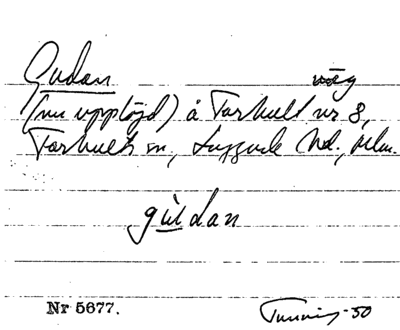 Gudan väg
(nu upplöjd) å Farhult nr 8,
Farhults sn, Luggude hd., Mlm.
güdan
Nr 5677.
-50